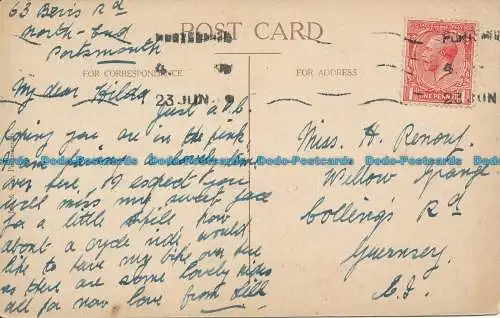 63 Beris Rd
North-End
Portsmouth
POST CARD
FOR CORRESPONDENCE
FOR ADDRESS
23 JUN 9
ONE PENNY
My dear Hilda
Just a p.c.
hoping you are in the pink
am having a lovely time
over here, I expect you
will miss my sweet face
for a little while, how
about a cycle ride, would
like to have my bike over here
as there are some lovely rides
all for now love from Lill
Miss. H. Renouf.
Willow Grange
Colling's Rd
Guernsey
C.I.
Dodo-Postcards Dodo-Postcards Dodo-Postcards Dodo-Postcards Dodo-Postcards